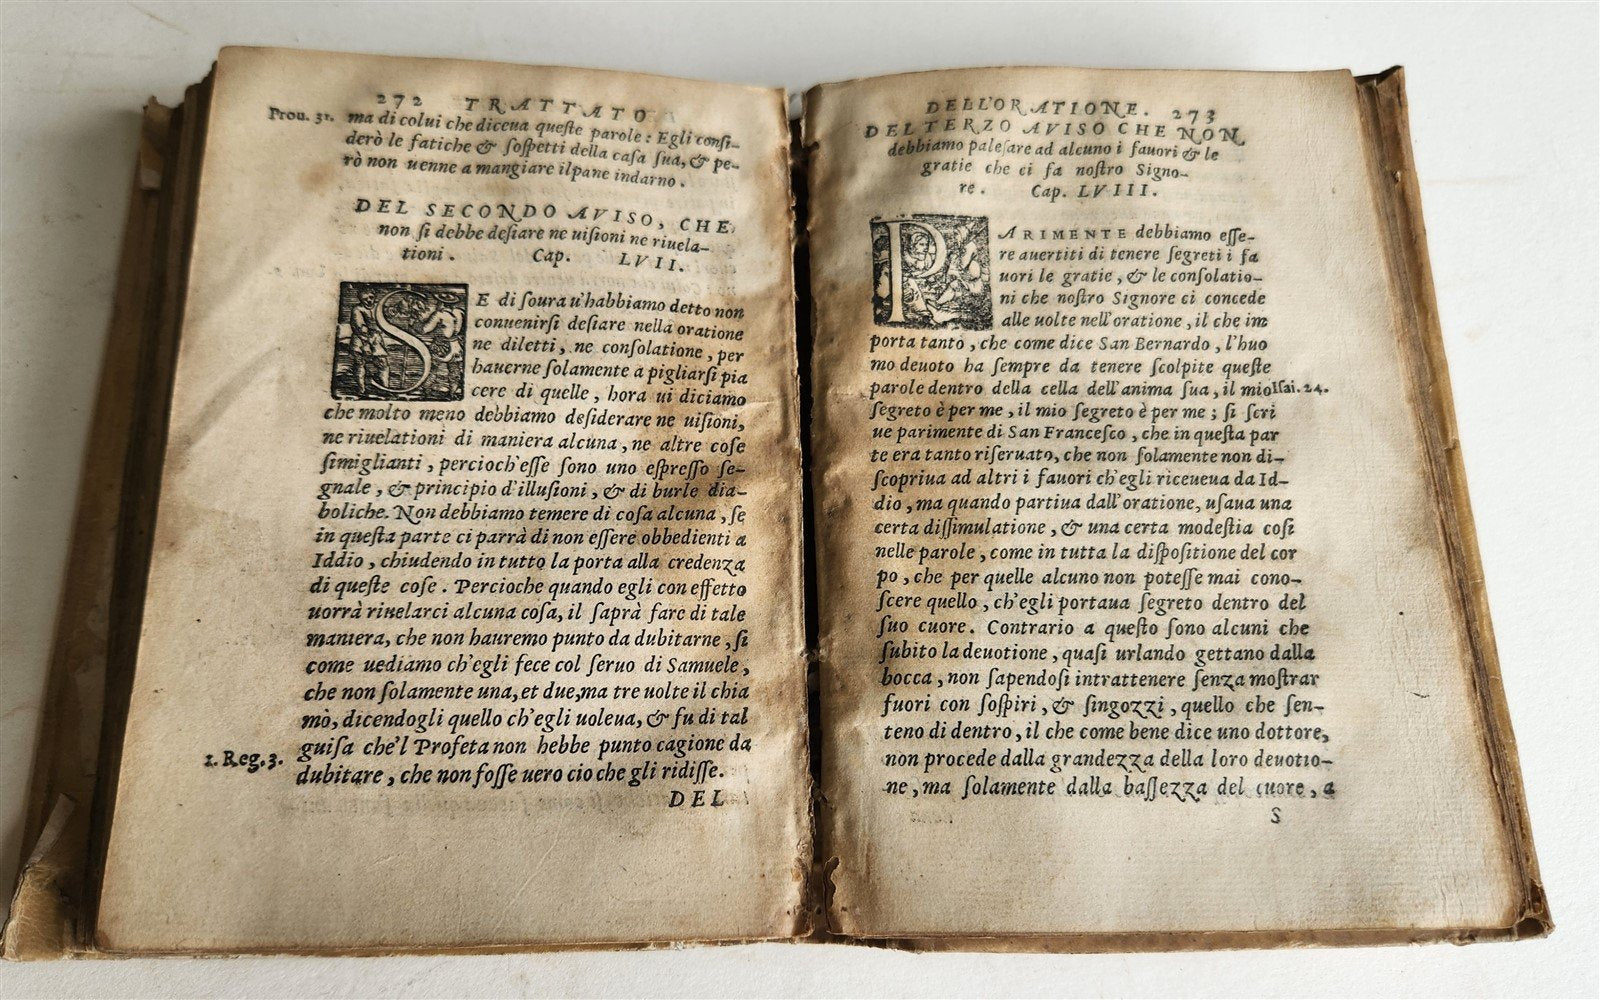 272 TRATTATO
Prou. 31. ma di colui che diceua queſte parole: Egli conſi-
derò le fatiche & ſoſpetti della caſa ſua, & pe-
rò non uenne a mangiare il pane indarno.
DEL SECONDO AVISO, CHE
non ſi debbe deſiare ne uiſioni ne riuela-
tioni. Cap. LVII.
SE di ſoura u'habbiamo detto non
conuenirſi deſiare nella oratione
ne diletti, ne conſolatione, per
hauerne ſolamente a pigliarſi pia
cere di quelle, hora ui diciamo
che molto meno debbiamo deſiderare ne uiſioni,
ne riuelationi di maniera alcuna, ne altre coſe
ſimiglianti, percioch'eſſe ſono uno eſpreſſo ſe-
gnale, & principio d'illuſioni, & di burle dia-
boliche. Non debbiamo temere di coſa alcuna, ſe
in queſta parte ci parrà di non eſſere obbedienti a
Iddio, chiudendo in tutto la porta alla credenza
di queſte coſe. Percioche quando egli con effetto
uorrà riuelarci alcuna coſa, il ſaprà fare di tale
maniera, che non hauremo punto da dubitarne, ſi
come uediamo ch'egli fece col ſeruo di Samuele,
che non ſolamente una, et due, ma tre uolte il chia
mò, dicendogli quello ch'egli uoleua, & fu di tal
guiſa che'l Profeta non hebbe punto cagione da
1. Reg. 3. dubitare, che non foſſe uero cio che gli ridiſſe.
DEL
DELL'ORATIONE. 273
DEL TERZO AVISO CHE NON
debbiamo paleſare ad alcuno i fauori & le
gratie che ci fa noſtro Signo-
re. Cap. LVIII.
PARIMENTE debbiamo eſſe-
re auertiti di tenere ſegreti i fa
uori le gratie, & le conſolatio-
ni che noſtro Signore ci concede
alle uolte nell'oratione, il che im
porta tanto, che come dice San Bernardo, l'huo
mo deuoto ha ſempre da tenere ſcolpite queſte
parole dentro della cella dell'anima ſua, il mio Iſai. 24.
ſegreto è per me, il mio ſegreto è per me; ſi ſcri
ue parimente di San Franceſco, che in queſta par
te era tanto riſeruato, che non ſolamente non di-
ſcopriua ad altri i fauori ch'egli riceueua da Id-
dio, ma quando partiua dall'oratione, uſaua una
certa diſſimulatione, & una certa modeſtia coſi
nelle parole, come in tutta la diſpoſitione del cor
po, che per quelle alcuno non poteſſe mai cono-
ſcere quello, ch'egli portaua ſegreto dentro del
ſuo cuore. Contrario a queſto ſono alcuni che
ſubito la deuotione, quaſi urlando gettano dalla
bocca, non ſapendoſi intrattenere ſenza moſtrar
fuori con ſoſpiri, & ſingozzi, quello che ſen-
teno di dentro, il che come bene dice uno dottore,
non procede dalla grandezza della loro deuotio-
ne, ma ſolamente dalla baſſezza del cuore, a
S